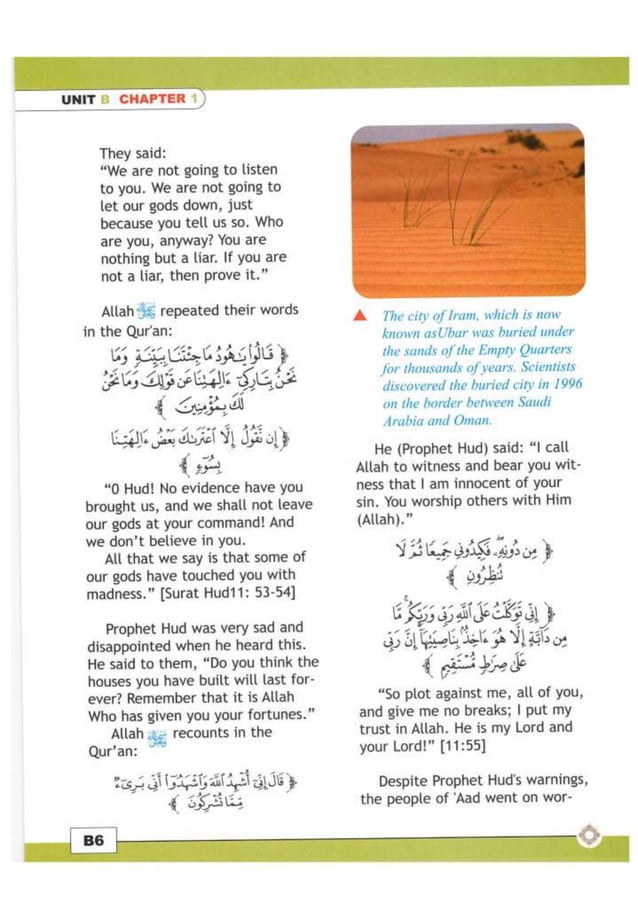 UNIT B CHAPTER 1
They said:
“We are not going to listen
to you. We are not going to
let our gods down, just
because you tell us so. Who
are you, anyway? You are
nothing but a liar. If you are
not a liar, then prove it.”
Allah repeated their words
in the Qur'an:
﴿ قَالُوا۟ يَـٰهُودُ مَا جِئْتَنَا بِبَيِّنَةٍ وَمَا
نَحْنُ بِتَارِكِىٓ ءَالِهَتِنَا عَن قَوْلِكَ وَمَا نَحْنُ
لَكَ بِمُؤْمِنِينَ ﴾
﴿ إِن نَّقُولُ إِلَّا ٱعْتَرَىٰكَ بَعْضُ ءَالِهَتِنَا
بِسُوٓءٍ ﴾
“O Hud! No evidence have you
brought us, and we shall not leave
our gods at your command! And
we don’t believe in you.
All that we say is that some of
our gods have touched you with
madness.” [Surat Hud11: 53-54]
Prophet Hud was very sad and
disappointed when he heard this.
He said to them, “Do you think the
houses you have built will last for-
ever? Remember that it is Allah
Who has given you your fortunes.”
Allah recounts in the
Qur’an:
﴿ قَالَ إِنِّىٓ أُشْهِدُ ٱللَّهَ وَٱشْهَدُوٓا۟ أَنِّى بَرِىٓءٌ
مِّمَّا تُشْرِكُونَ ﴾
The city of Iram, which is now
known asUbar was buried under
the sands of the Empty Quarters
for thousands of years. Scientists
discovered the buried city in 1996
on the border between Saudi
Arabia and Oman.
He (Prophet Hud) said: “I call
Allah to witness and bear you wit-
ness that I am innocent of your
sin. You worship others with Him
(Allah).”
﴿ مِن دُونِهِۦ فَكِيدُونِى جَمِيعًا ثُمَّ لَا
تُنظِرُونِ ﴾
﴿ إِنِّى تَوَكَّلْتُ عَلَى ٱللَّهِ رَبِّى وَرَبِّكُم مَّا
مِن دَآبَّةٍ إِلَّا هُوَ ءَاخِذٌۢ بِنَاصِيَتِهَآ إِنَّ رَبِّى
عَلَىٰ صِرَٰطٍ مُّسْتَقِيمٍ ﴾
“So plot against me, all of you,
and give me no breaks; I put my
trust in Allah. He is my Lord and
your Lord!” [11:55]
Despite Prophet Hud's warnings,
the people of 'Aad went on wor-
B6